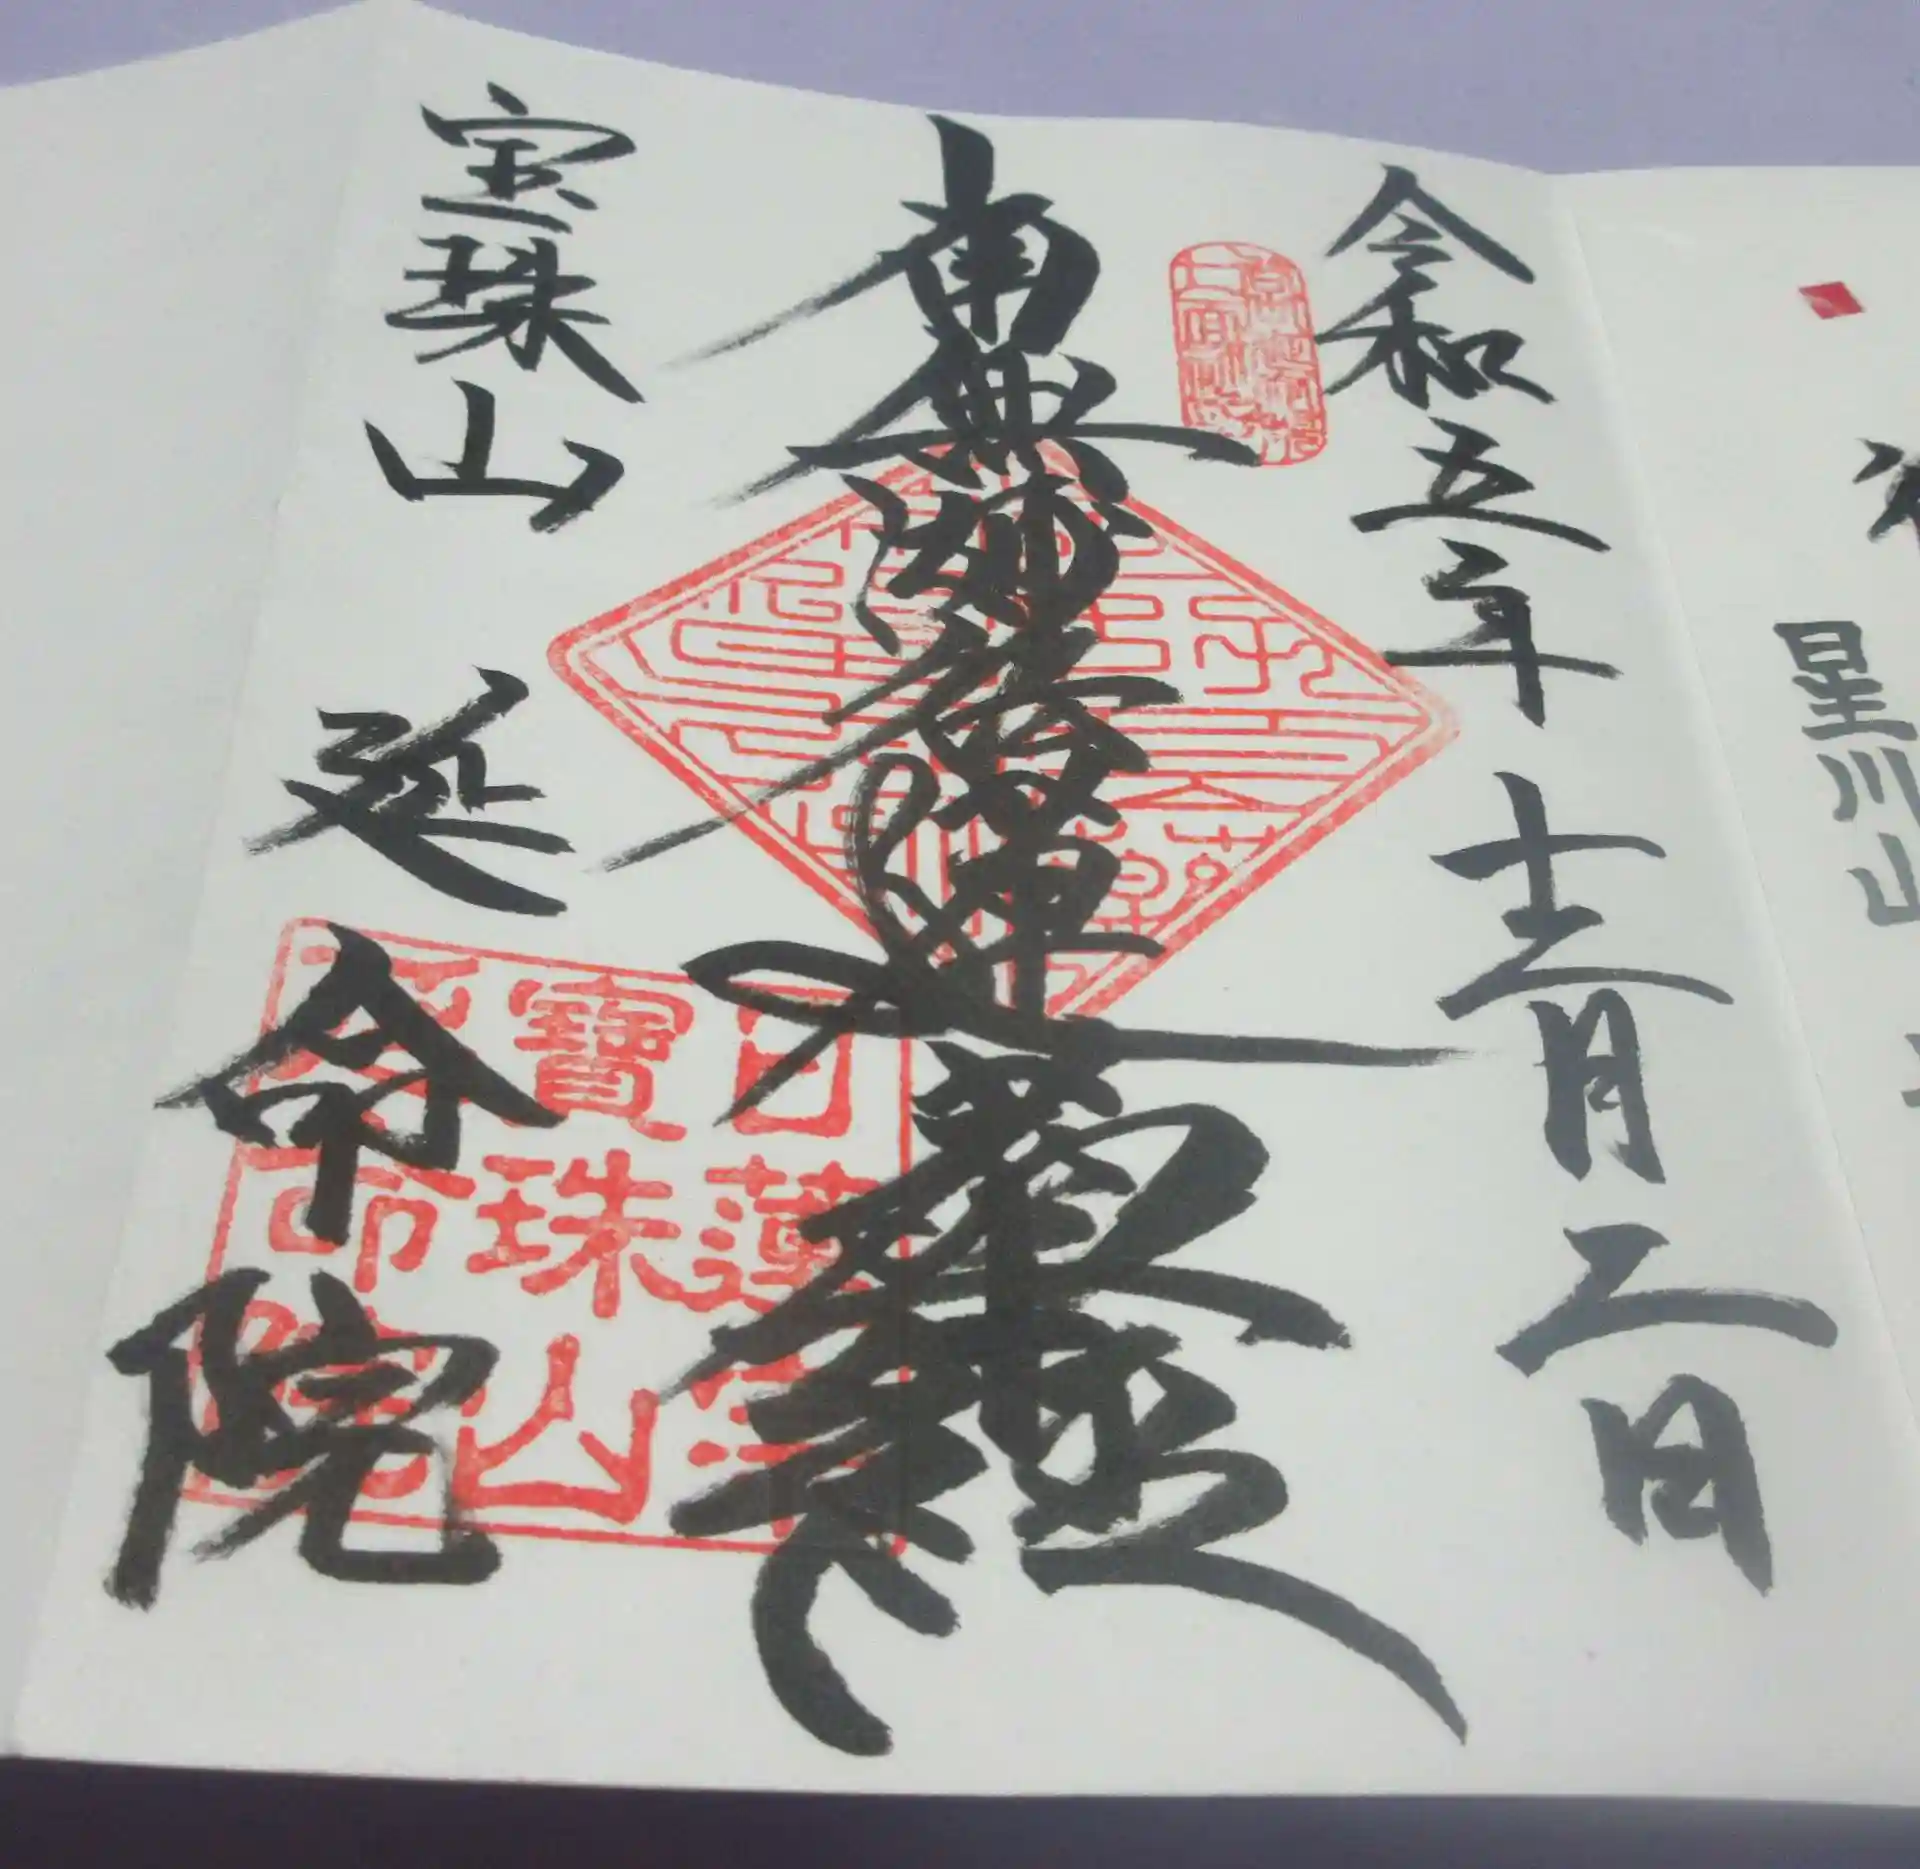 星川山
令和五年十二月二日
南無妙法蓮華經
宝珠山
延命院
日蓮宗
寶珠山
延命院